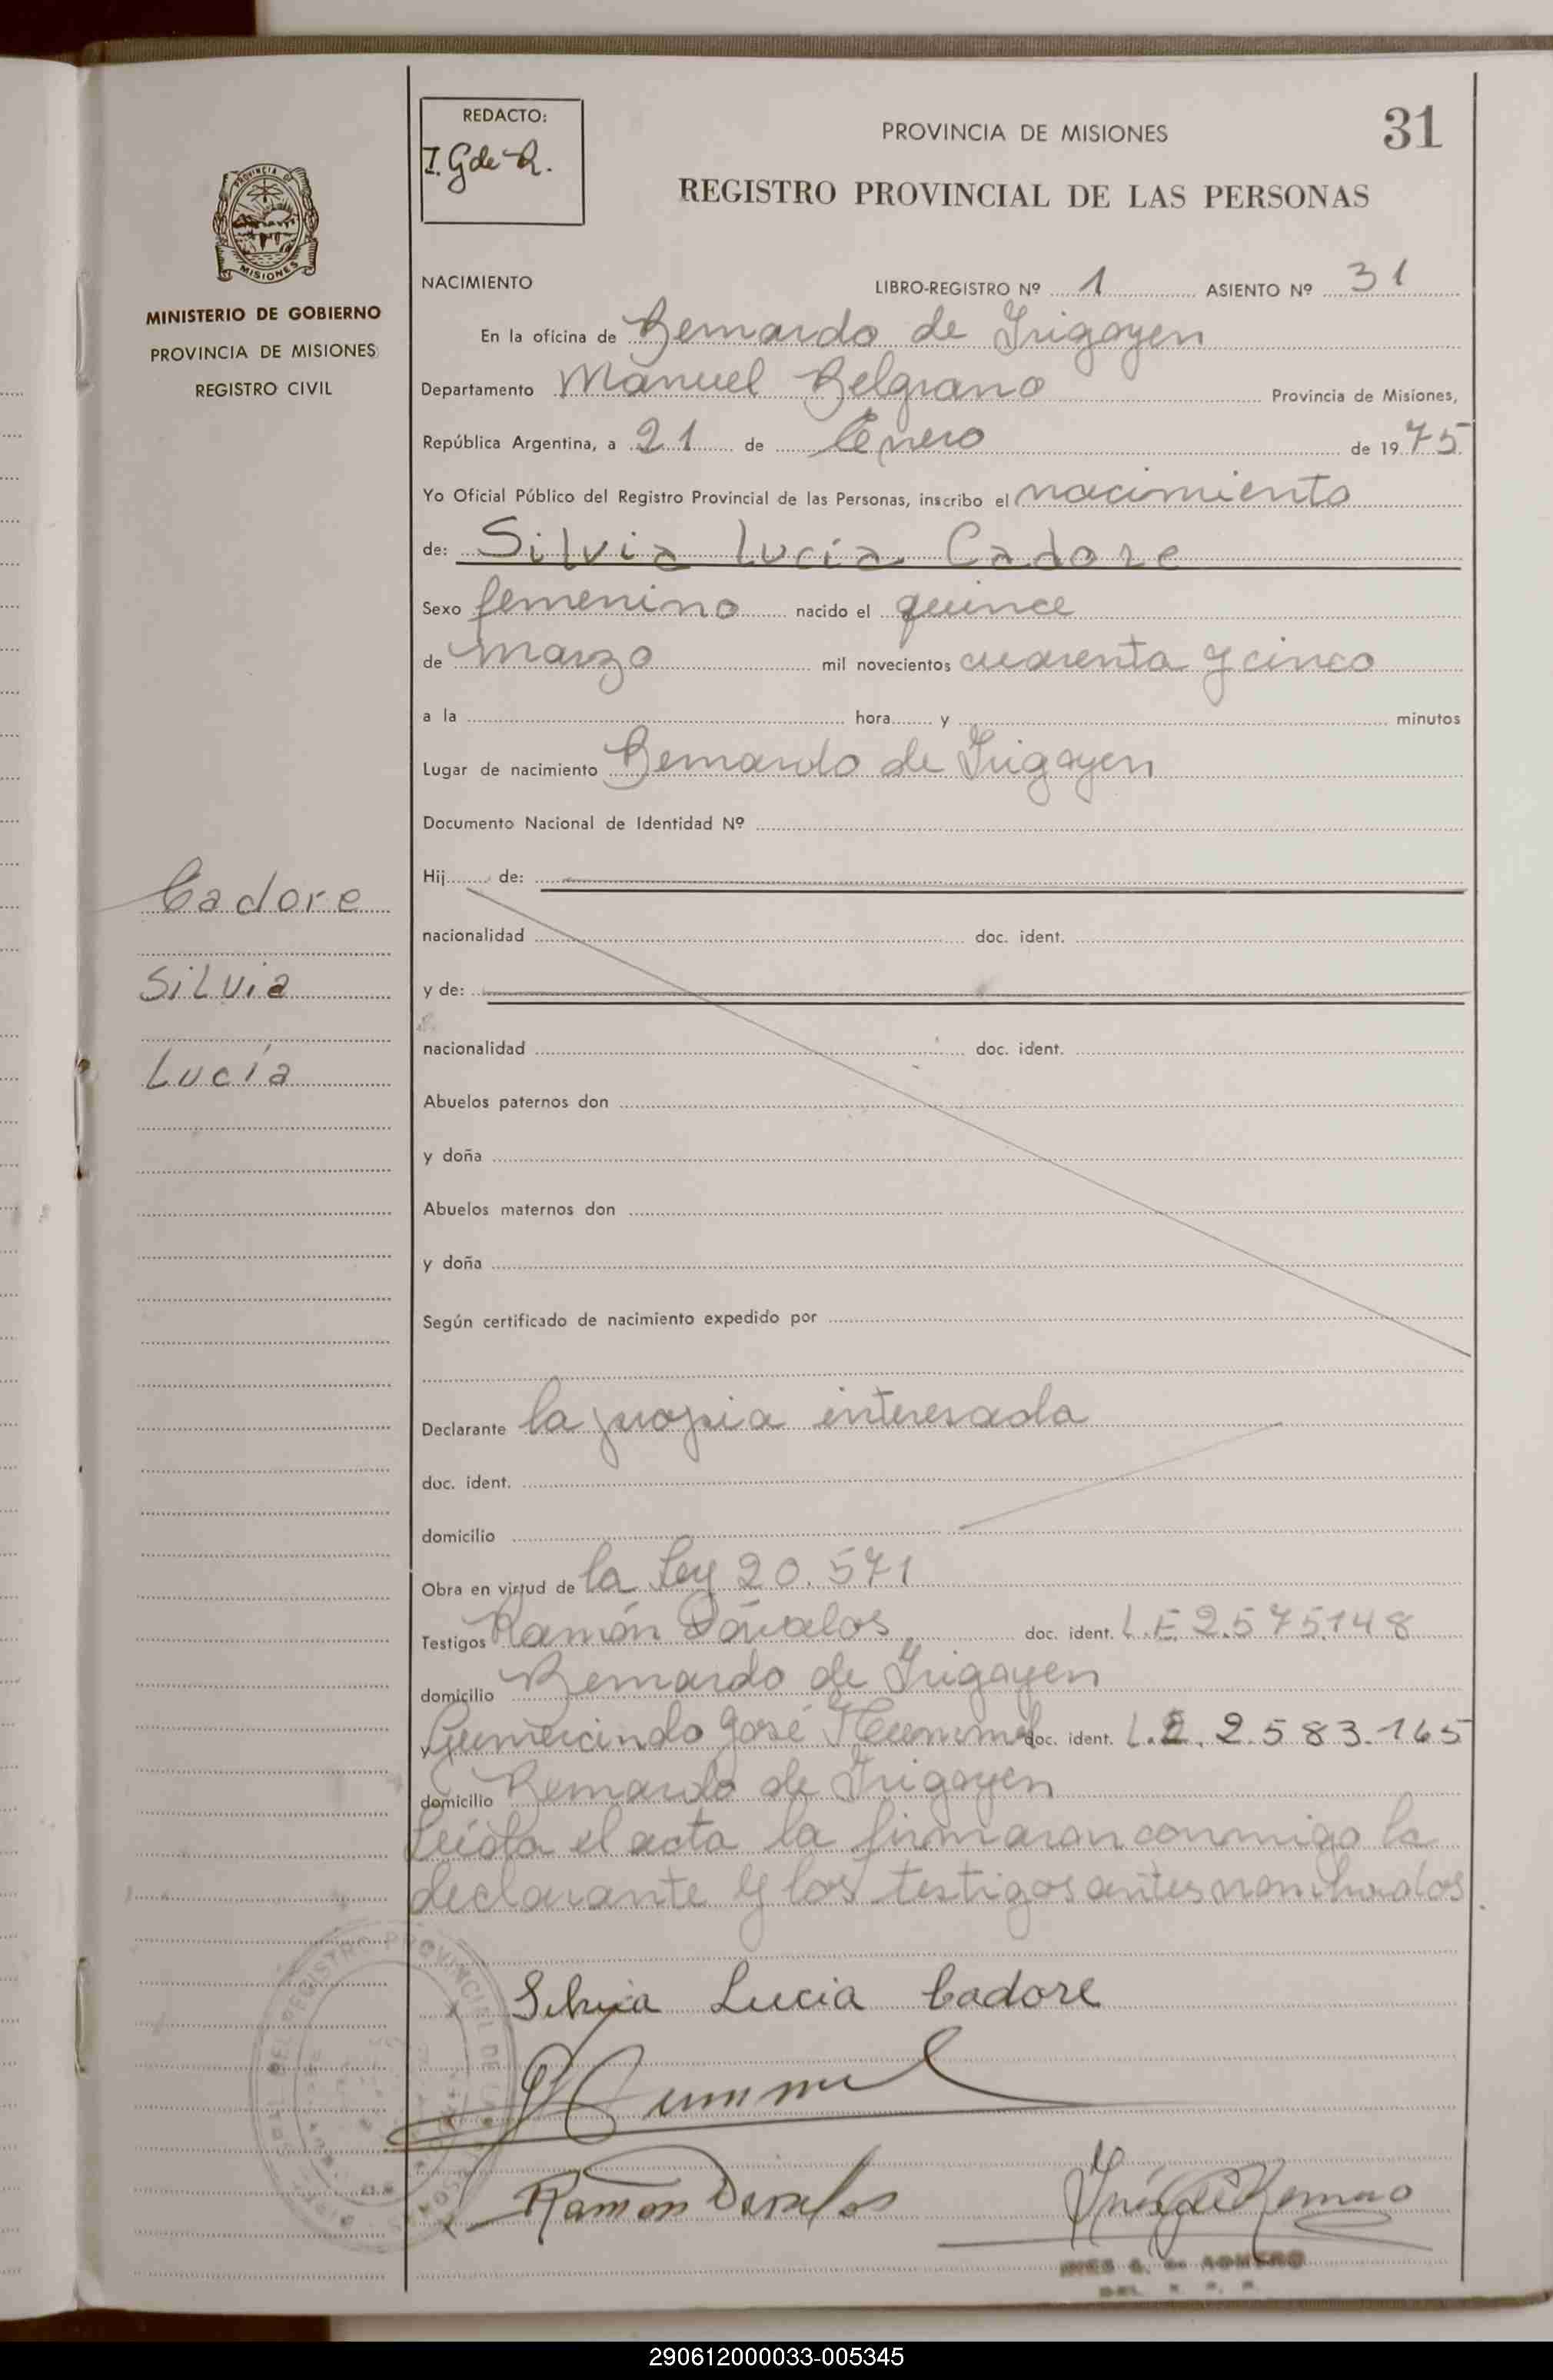 REDACTO:
I. G de R.
PROVINCIA DE MISIONES
31
REGISTRO PROVINCIAL DE LAS PERSONAS
PROVINCIA DE
MISIONES
MINISTERIO DE GOBIERNO
PROVINCIA DE MISIONES
REGISTRO CIVIL
NACIMIENTO LIBRO-REGISTRO Nº 1 ASIENTO Nº 31
En la oficina de Bernardo de Irigoyen
Departamento Manuel Belgrano Provincia de Misiones,
República Argentina, a 21 de Enero de 1975
Yo Oficial Público del Registro Provincial de las Personas, inscribo el nacimiento
de: Silvia Lucía Cadore
Sexo femenino nacido el quince
de marzo mil novecientos cuarenta y cinco
a la hora y minutos
Lugar de nacimiento Bernardo de Irigoyen
Documento Nacional de Identidad Nº
Hij de:
Cadore
nacionalidad doc. ident.
Silvia
y de:
nacionalidad doc. ident.
Lucía
Abuelos paternos don
y doña
Abuelos maternos don
y doña
Según certificado de nacimiento expedido por
Declarante la propia interesada
doc. ident.
domicilio
Obra en virtud de la Ley 20.571
Testigos Ramón Dávalos doc. ident. L.E 2.575.148
domicilio Bernardo de Irigoyen
y Gumercindo José Hummel doc. ident. L.E. 2.583.165
domicilio Bernardo de Irigoyen
Leída el acta la firmaron conmigo la
declarante y los testigos antes nombrados
Silvia Lucia Cadore
GHummel
Ramon Davalos
Inés G de Romero
INES G. de ROMERO
290612000033-005345